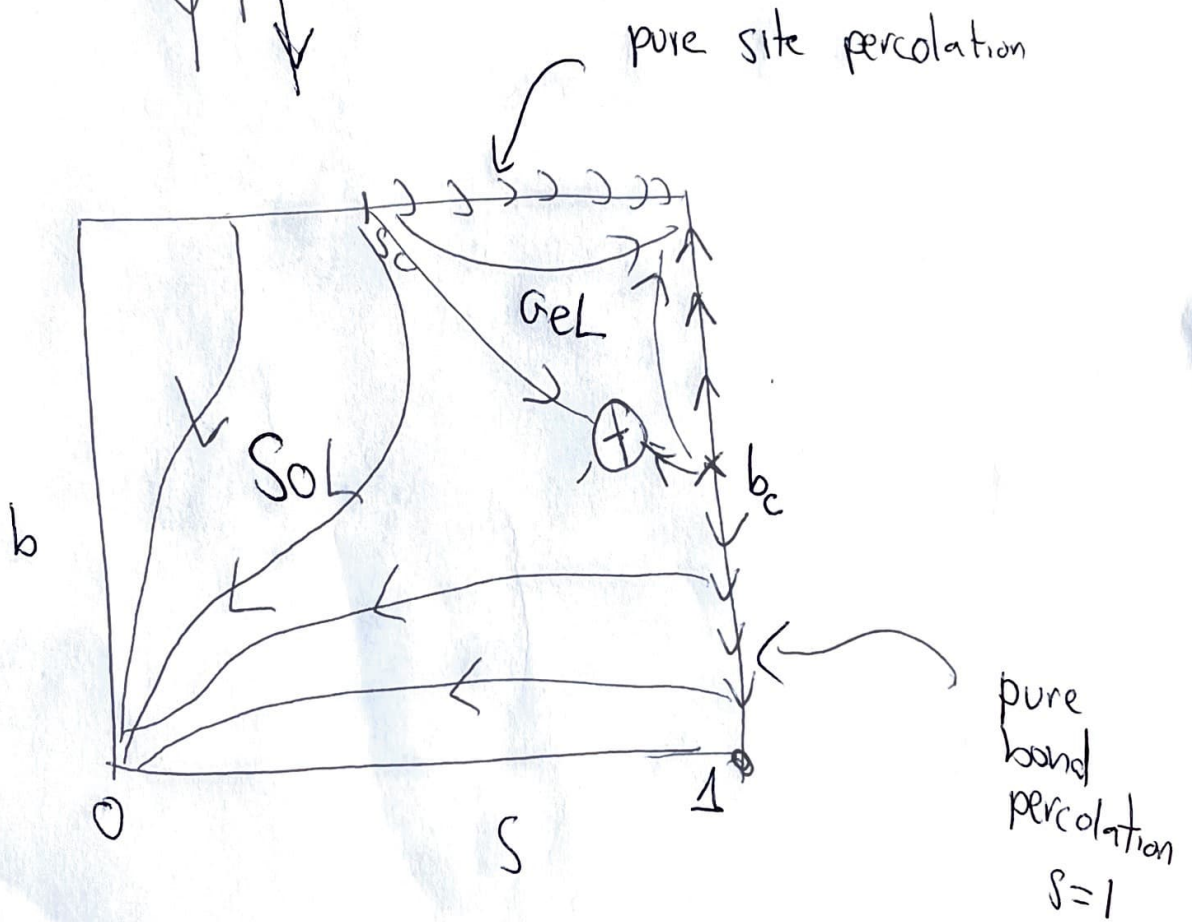 pure site percolation
Sc
GeL
SoL
bc
b
pure
bond
percolation
S=1
0
1
S